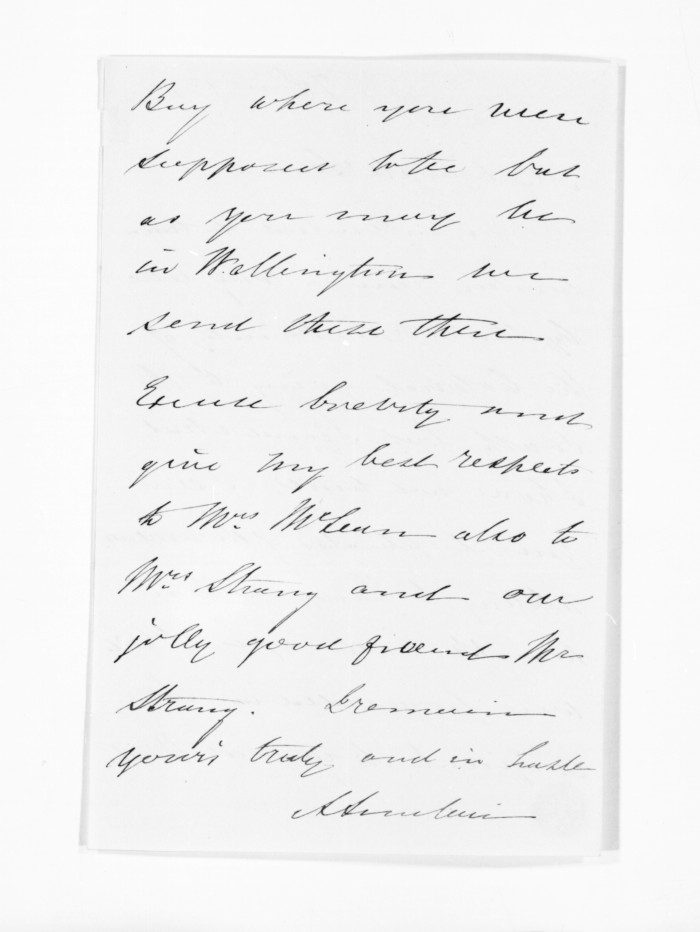 Bay where you were
supposed to be but
as you may be
in Wellington we
send these there
Excuse brevity and
give my best respects
to Mrs McLean also to
Mrs Strang and our
jolly good friend Mr
Strang. I remain
yours truly and in haste